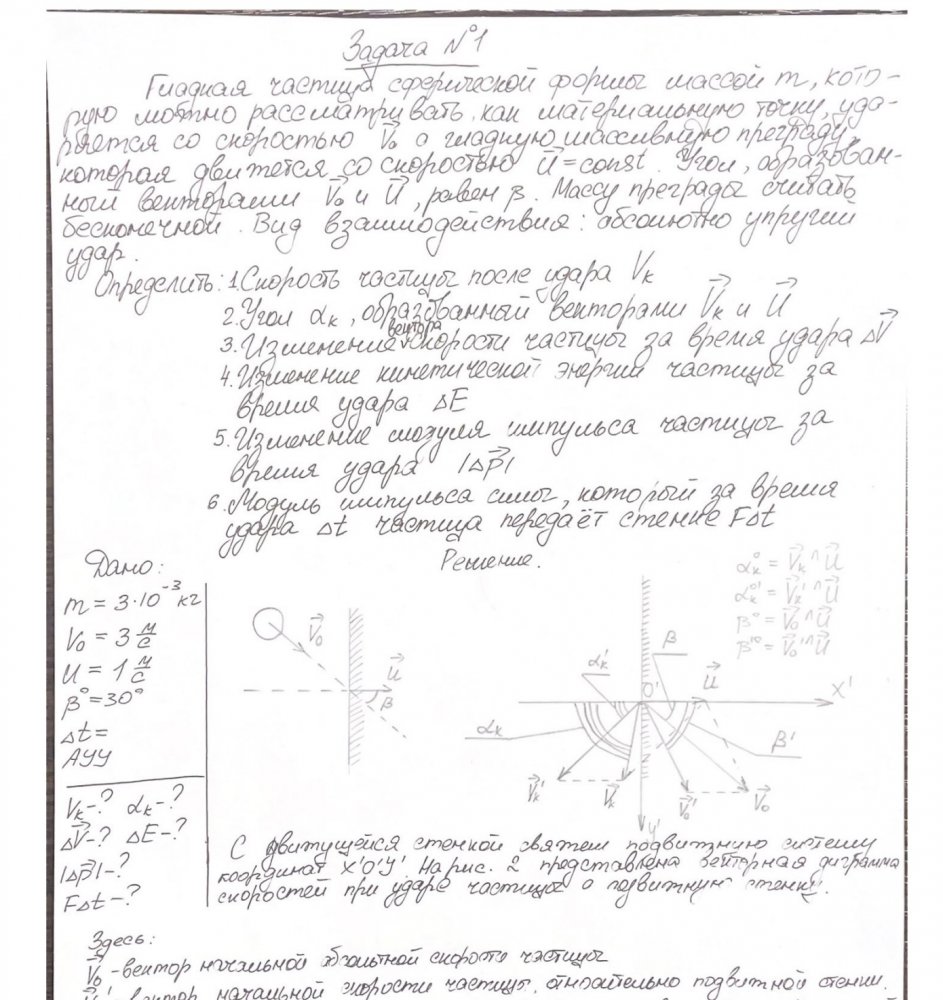 Задача №1
Гладкая частица сферической формы массой m, кото-
рую можно рассматривать как материальную точку, уда-
ряется со скоростью V⃗₀ о гладкую массивную преграду,
которая двигается со скоростью U⃗ = const. Угол, образован-
ный векторами V⃗₀ и U⃗, равен β. Массу преграды считать
бесконечной. Вид взаимодействия: абсолютно упругий
удар.
Определить: 1. Скорость частицы после удара Vк
2. Угол αк, образованный векторами V⃗к и U⃗
3. Изменение вектора скорости частицы за время удара ΔV⃗
4. Изменение кинетической энергии частицы за
время удара ΔE
5. Изменение модуля импульса частицы за
время удара |Δp⃗|
6. Модуль импульса силы, который за время
удара Δt частица передаёт стенке FΔt
Дано:
m = 3·10⁻³ кг
V₀ = 3 м/с
U = 1 м/с
β° = 30°
Δt =
АУУ
Vк-? αк-?
ΔV⃗-? ΔE-?
|Δp⃗|-?
FΔt-?
Решение.
αк° = V⃗к ^ U⃗
αк°' = V⃗к' ^ U⃗
β° = V⃗₀ ^ U⃗
β'° = V⃗₀' ^ U⃗
V⃗₀
U⃗
β
αк'
β
O'
U⃗
X'
αк
β'
V⃗к'
V⃗к
V⃗₀'
V⃗₀
Y'
С движущейся стенкой свяжем подвижную систему
координат X'O'Y'. На рис. 2 представлена векторная диграмма
скоростей при ударе частицы о подвижную стенку.
Здесь:
V⃗₀ - вектор начальной абсолютной скорости частицы
вектор начальной скорости частицы, относительно подвижной стенки.